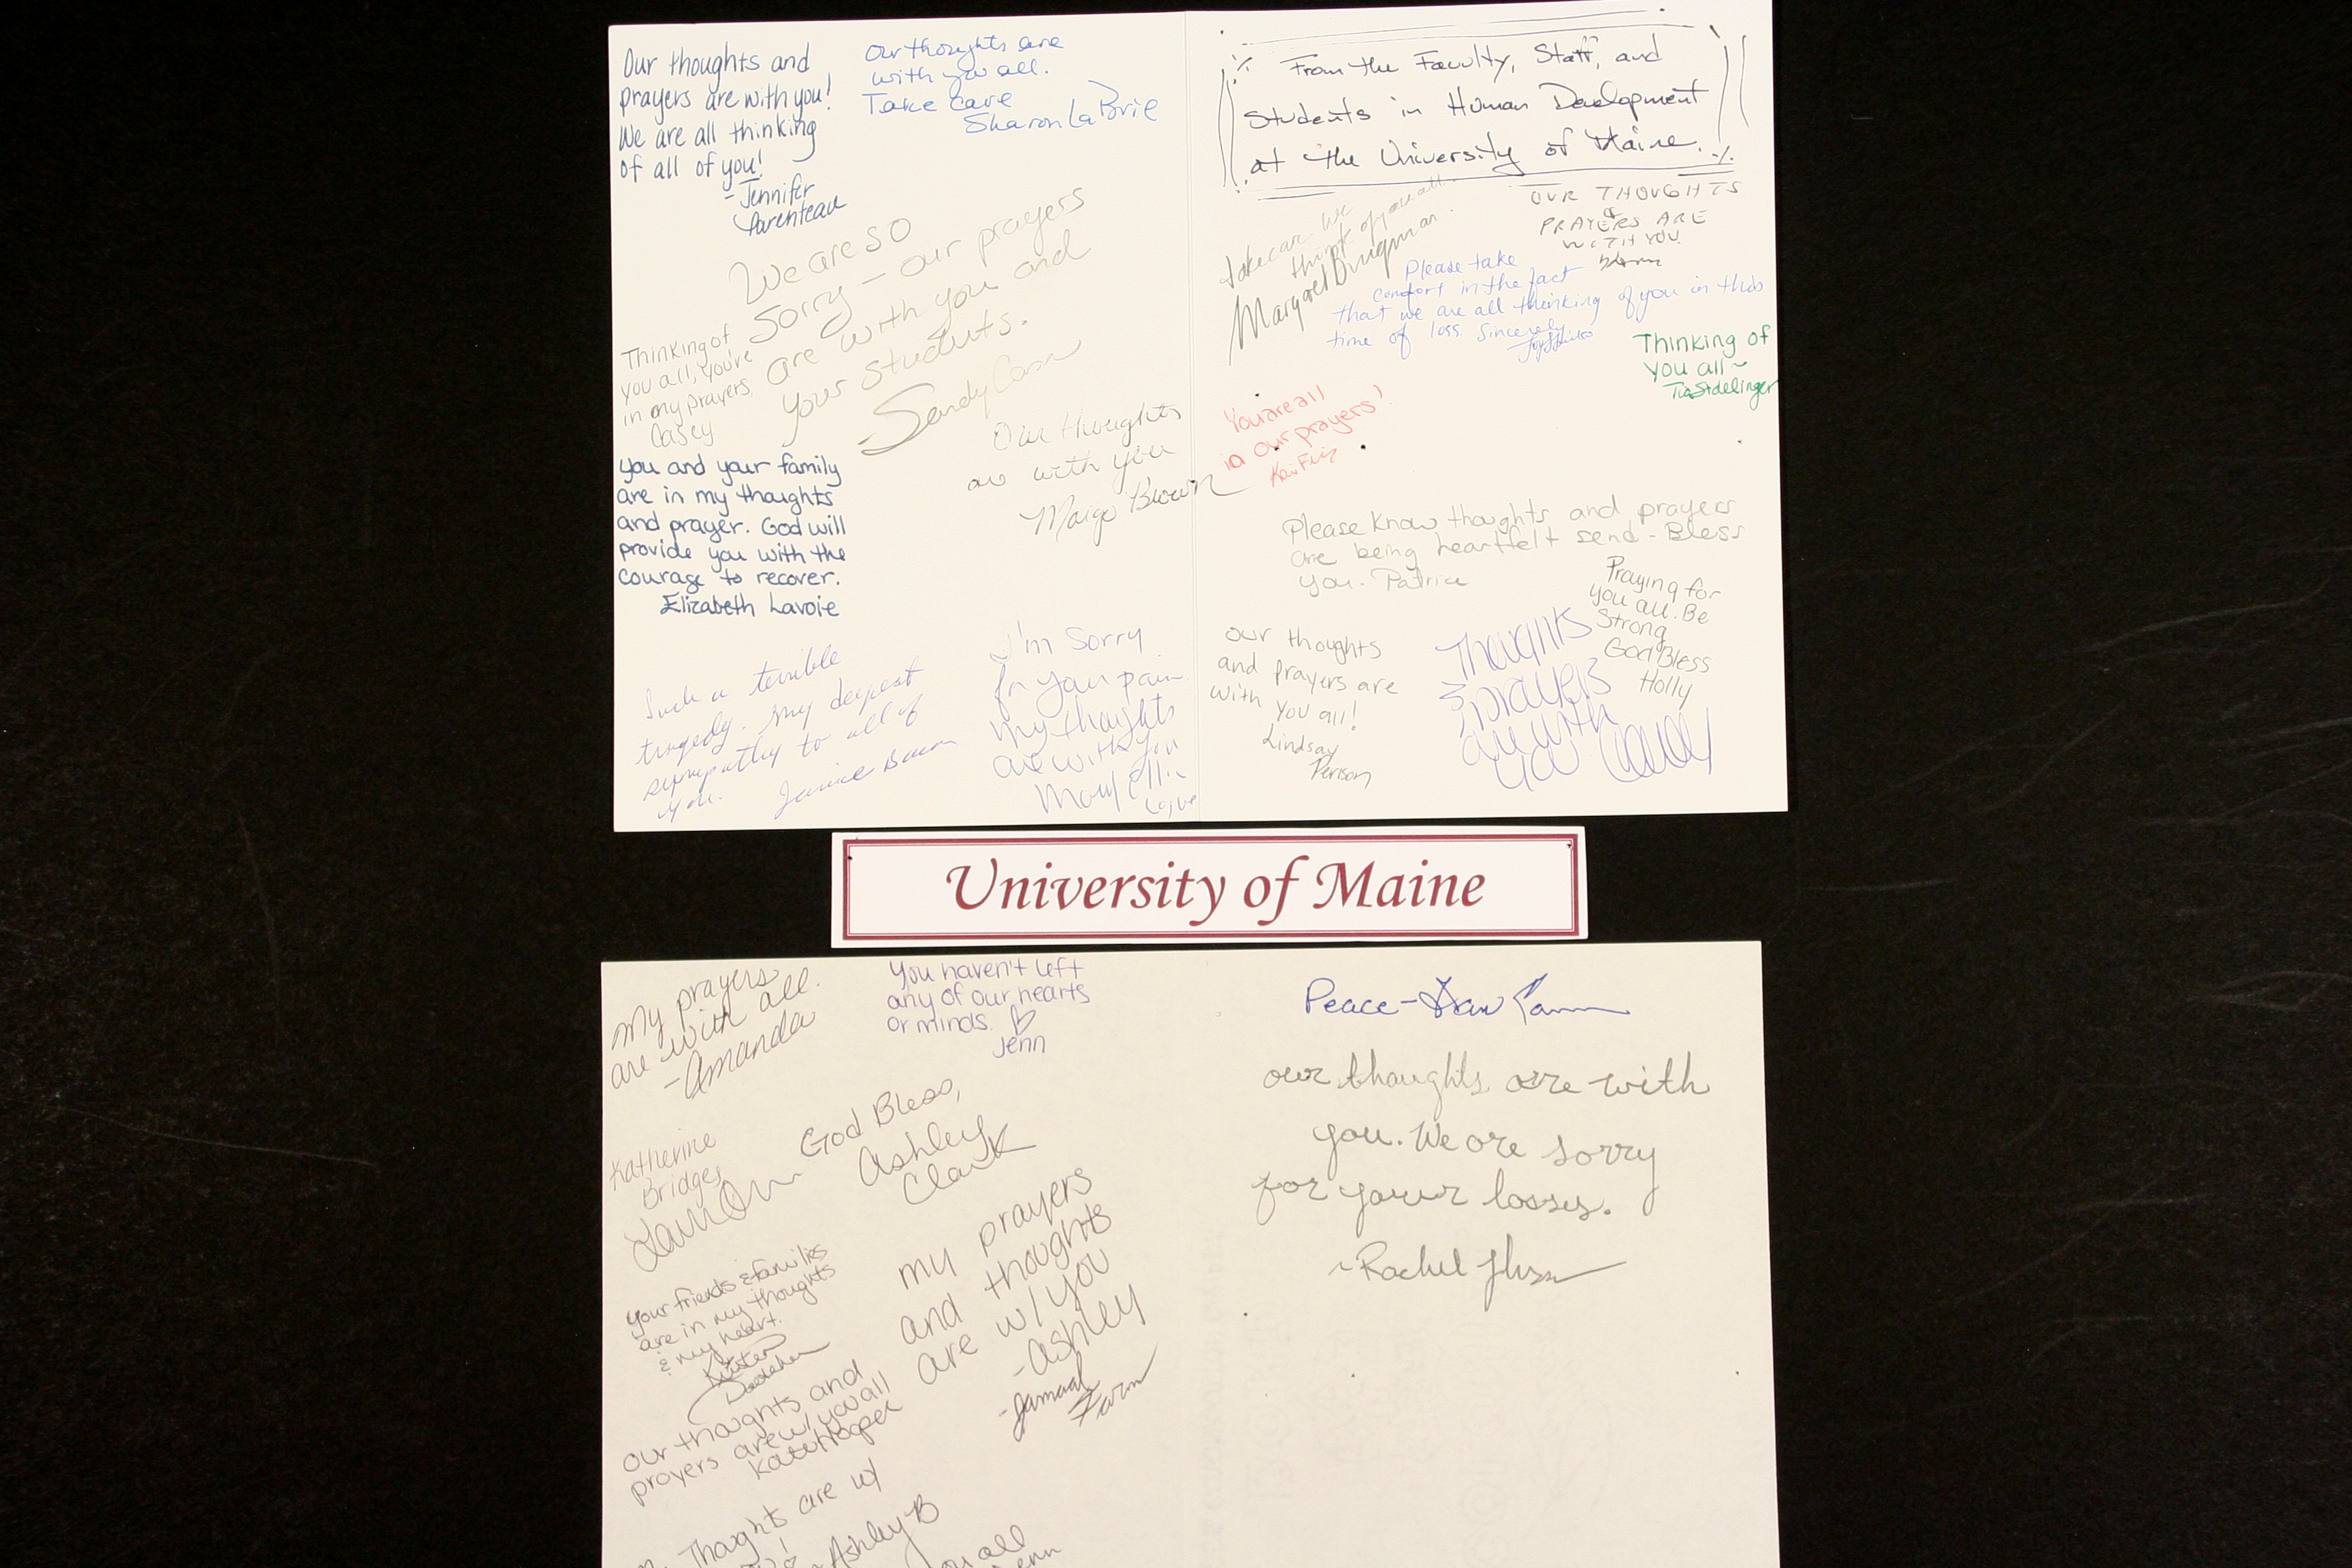 Our thoughts and
prayers are with you!
We are all thinking
of all of you!
- Jennifer
Parenteau
Our thoughts are
with you all.
Take care
Sharon LaBrie
We are so
Sorry - our prayers
are with you and
your students.
- Sandy
Thinking of
you all, you're
in my prayers,
Casey
Our thoughts
are with you
Margo Brown
You and your family
are in my thoughts
and prayer. God will
provide you with the
courage to recover.
Elizabeth Lavoie
Such a terrible
tragedy. My deepest
sympathy to all of
you.
Janice
I'm Sorry
for your pain.
My thoughts
are with you
Mary Ellin
From the Faculty, Staff, and
Students in Human Development
at the University of Maine.
Take care - we
think of you all.
Margaret
OUR THOUGHTS
&
PRAYERS ARE
WITH YOU
Please take
comfort in the fact
that we are all thinking of you in this
time of loss. Sincerely
Thinking of
you all ~
You are all
in our prayers!
Please know thoughts and prayers
are being heartfelt send - Bless
you. Patrice
Praying for
you all. Be
Strong
God Bless
Holly
our thoughts
and prayers are
with you all!
Lindsay
Perison
Thoughts
& prayers
are with
you
University of Maine
My prayers
are with all.
- Amanda
You haven't left
any of our hearts
or minds. ♡
Jenn
Katherine
Bridges
God Bless,
Ashley
Clark
your friends & families
are in my thoughts
& my heart.
Kristen
my prayers
and thoughts
are w/ you
- Ashley
- Jamaal
our thoughts and
prayers are w/ you all
Kate Hooper
Thoughts are w/
Ashley B
you all
Peace -
our thoughts are with
you. We are sorry
for your losses.
~ Rachel